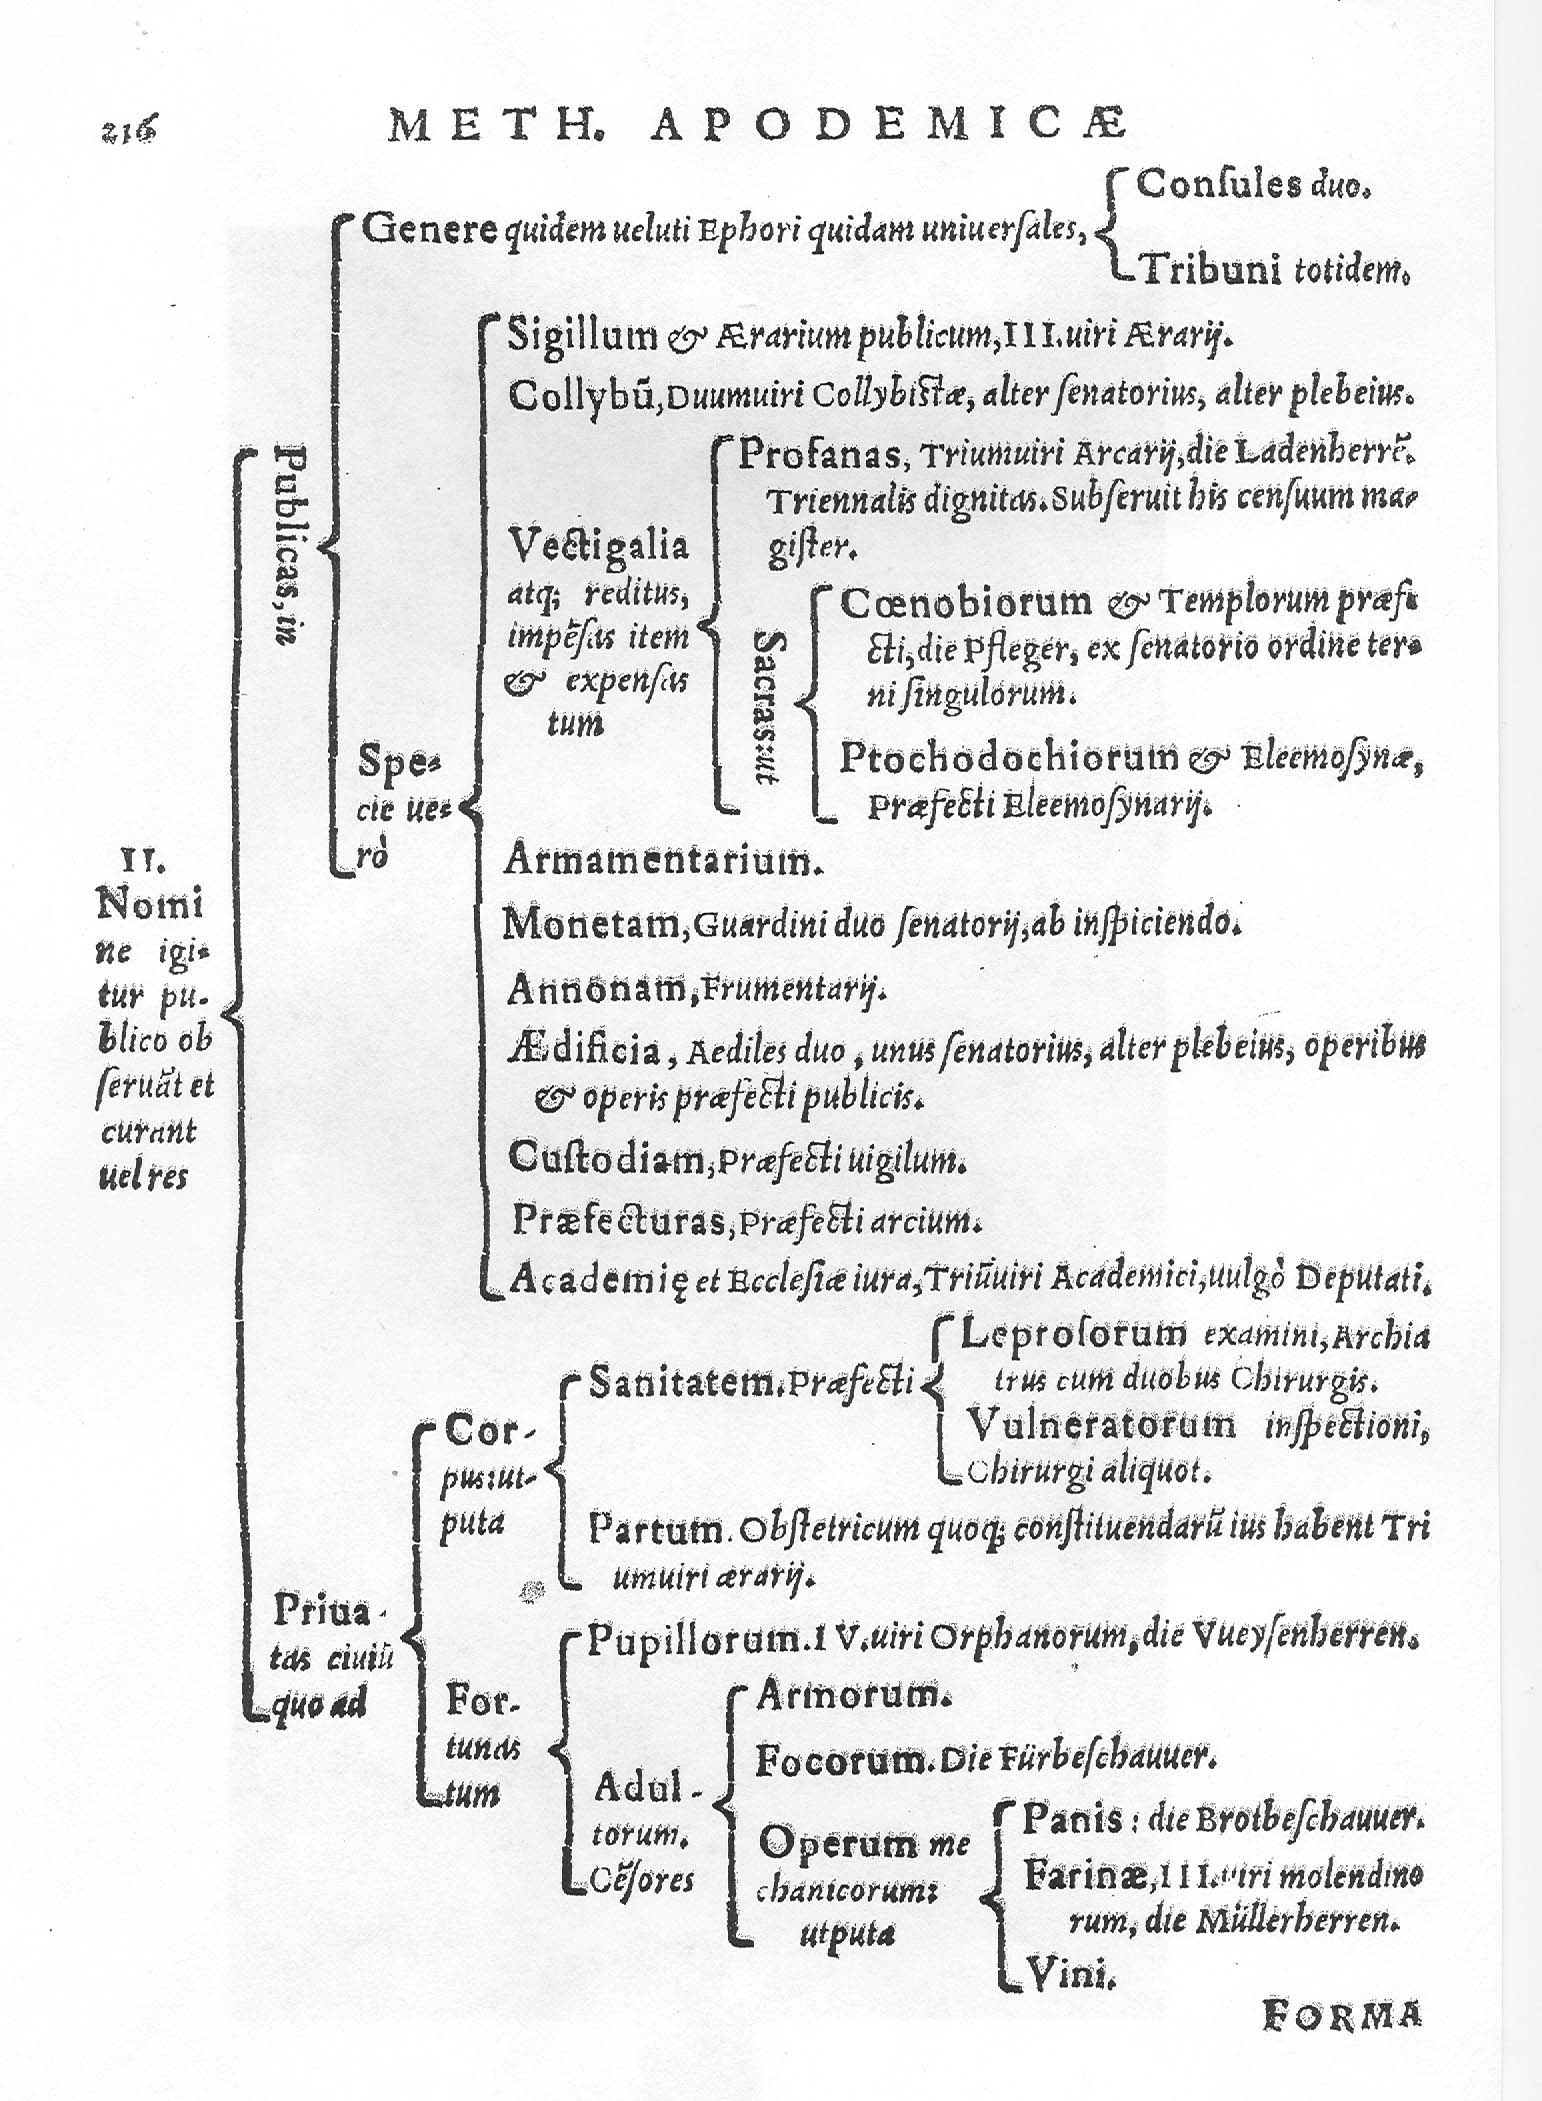 216 METH. APODEMICÆ
Conſules duo.
Genere quidem ueluti Ephori quidam uniuerſales,
Tribuni totidem.
Publicas, in
Spe-
cie ue-
rò
Sigillum & Ærarium publicum, III. uiri Ærarij.
Collybũ, Duumuiri Collybiſtæ, alter ſenatorius, alter plebeius.
Vectigalia
atq; reditus,
impẽſas item
& expenſas
tum
Profanas, Triumuiri Arcarij, die Ladenherrẽ.
Triennalis dignitas. Subſeruit his cenſuum ma-
giſter.
Sacras: ut
Cœnobiorum & Templorum præfe-
cti, die Pfleger, ex ſenatorio ordine ter-
ni ſingulorum.
Ptochodochiorum & Eleemoſynæ,
Præfecti Eleemoſynarij.
Armamentarium.
Monetam, Guardini duo ſenatorij, ab inſpiciendo.
Annonam, Frumentarij.
Ædificia, Aediles duo, unus ſenatorius, alter plebeius, operibus
& operis præfecti publicis.
Cuſtodiam, Præfecti uigilum.
Præfecturas, Præfecti arcium.
Academię et Eccleſiæ iura, Triũuiri Academici, uulgò Deputati.
II.
Nomi
ne igi-
tur pu-
blico ob
ſeruãt et
curant
uel res
Priua-
tas ciuiũ
quo ad
Cor-
pus: ut-
puta
Sanitatem. Præfecti
Leproſorum examini, Archia
trus cum duobus Chirurgis.
Vulneratorum inſpectioni,
Chirurgi aliquot.
Partum. Obſtetricum quoq; conſtituendarũ ius habent Tri
umuiri ærarij.
For-
tunas
tum
Pupillorum. IV. uiri Orphanorum, die Vueyſenherren.
Adul-
torum.
Cẽſores
Armorum.
Focorum. Die Fürbeſchauuer.
Operum me
chanicorum:
utputa
Panis: die Brotbeſchauuer.
Farinæ, III. uiri molendino
rum, die Müllerherren.
Vini.
FORMA